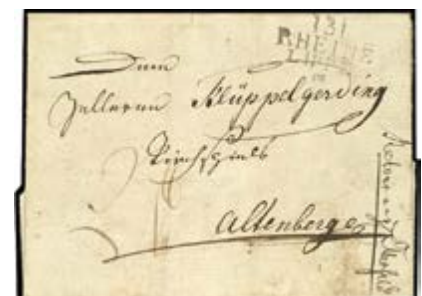 131
RHEINE
Dem
Zelleren Klüppelgerding
Kirchspiels
Altenberge